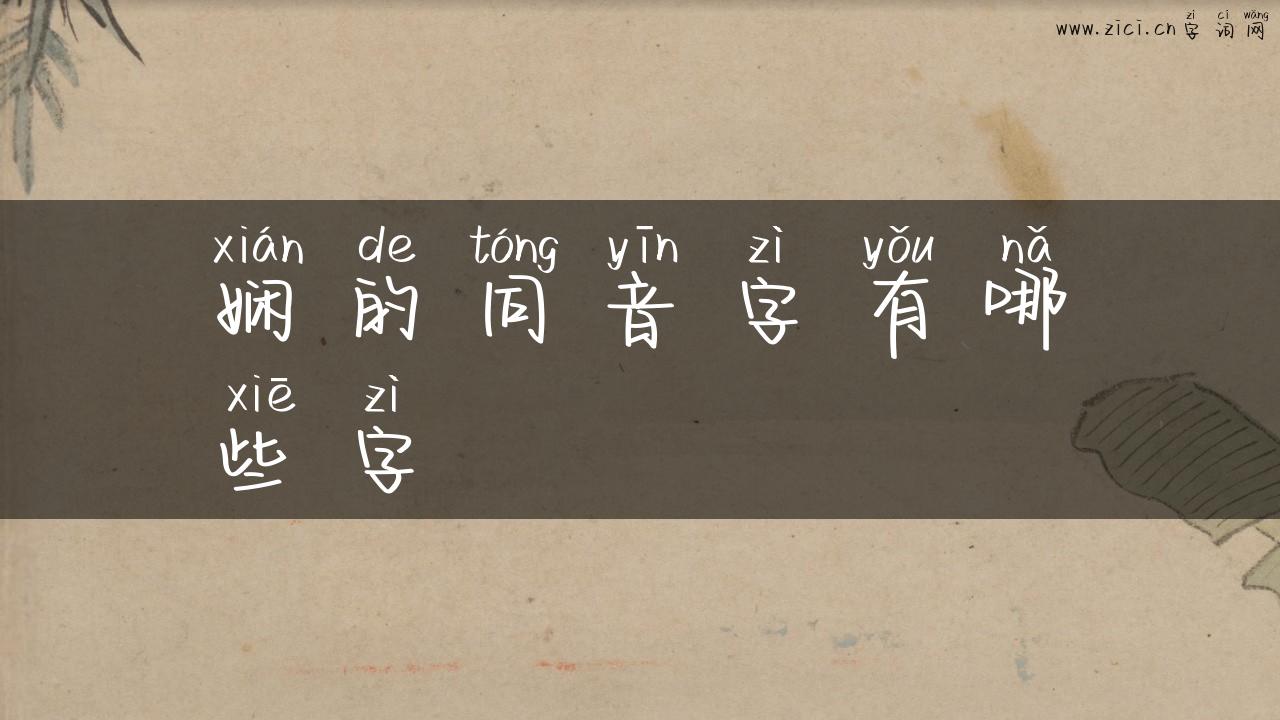 zì cí wǎng
www.zici.cn 字词网
xián de tóng yīn zì yǒu nǎ
娴的同音字有哪
xiē zì
些字